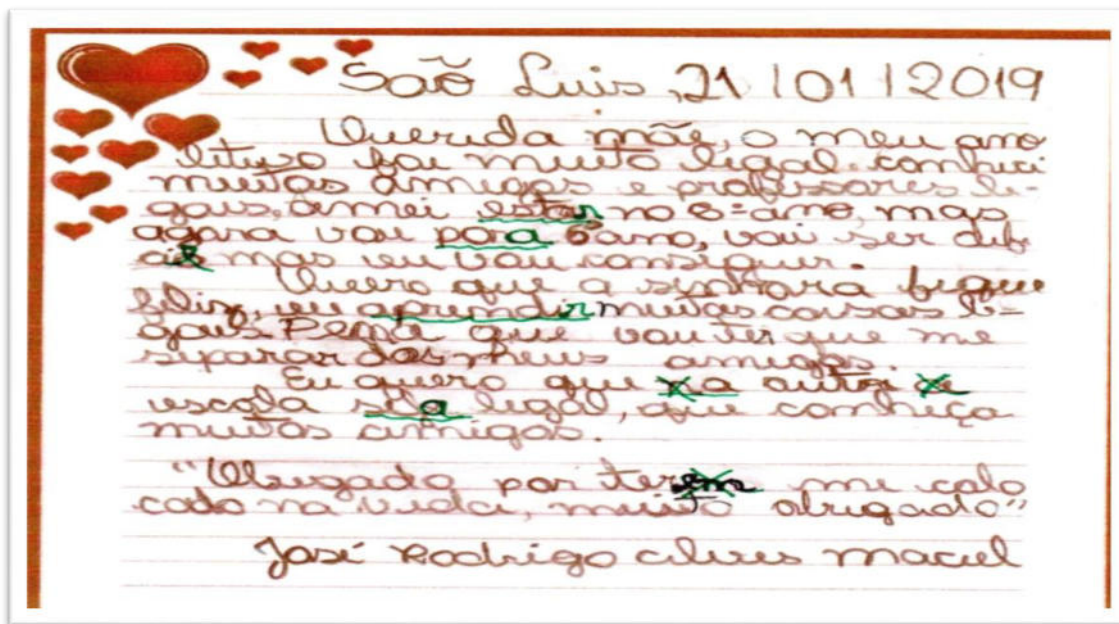 São Luis, 21/01/2019
Querida mãe, o meu ano
letivo foi muito legal. conheci
muitos amigos e professores le-
gais, amei estar no 5º ano, mas
agora vou para 6º ano, vai ser difi
cil mas eu vou conseguir.
Quero que a senhora fique
feliz, eu aprendir muitas coisas le-
gais. Pena que vou ter que me
separar dos meus amigos.
Eu quero que a outra
escola seja legal, que conheça
muitos amigos.
"Obrigado por terem me colo
cado na vida, muito obrigado"
José Rodrigo Alves Maciel